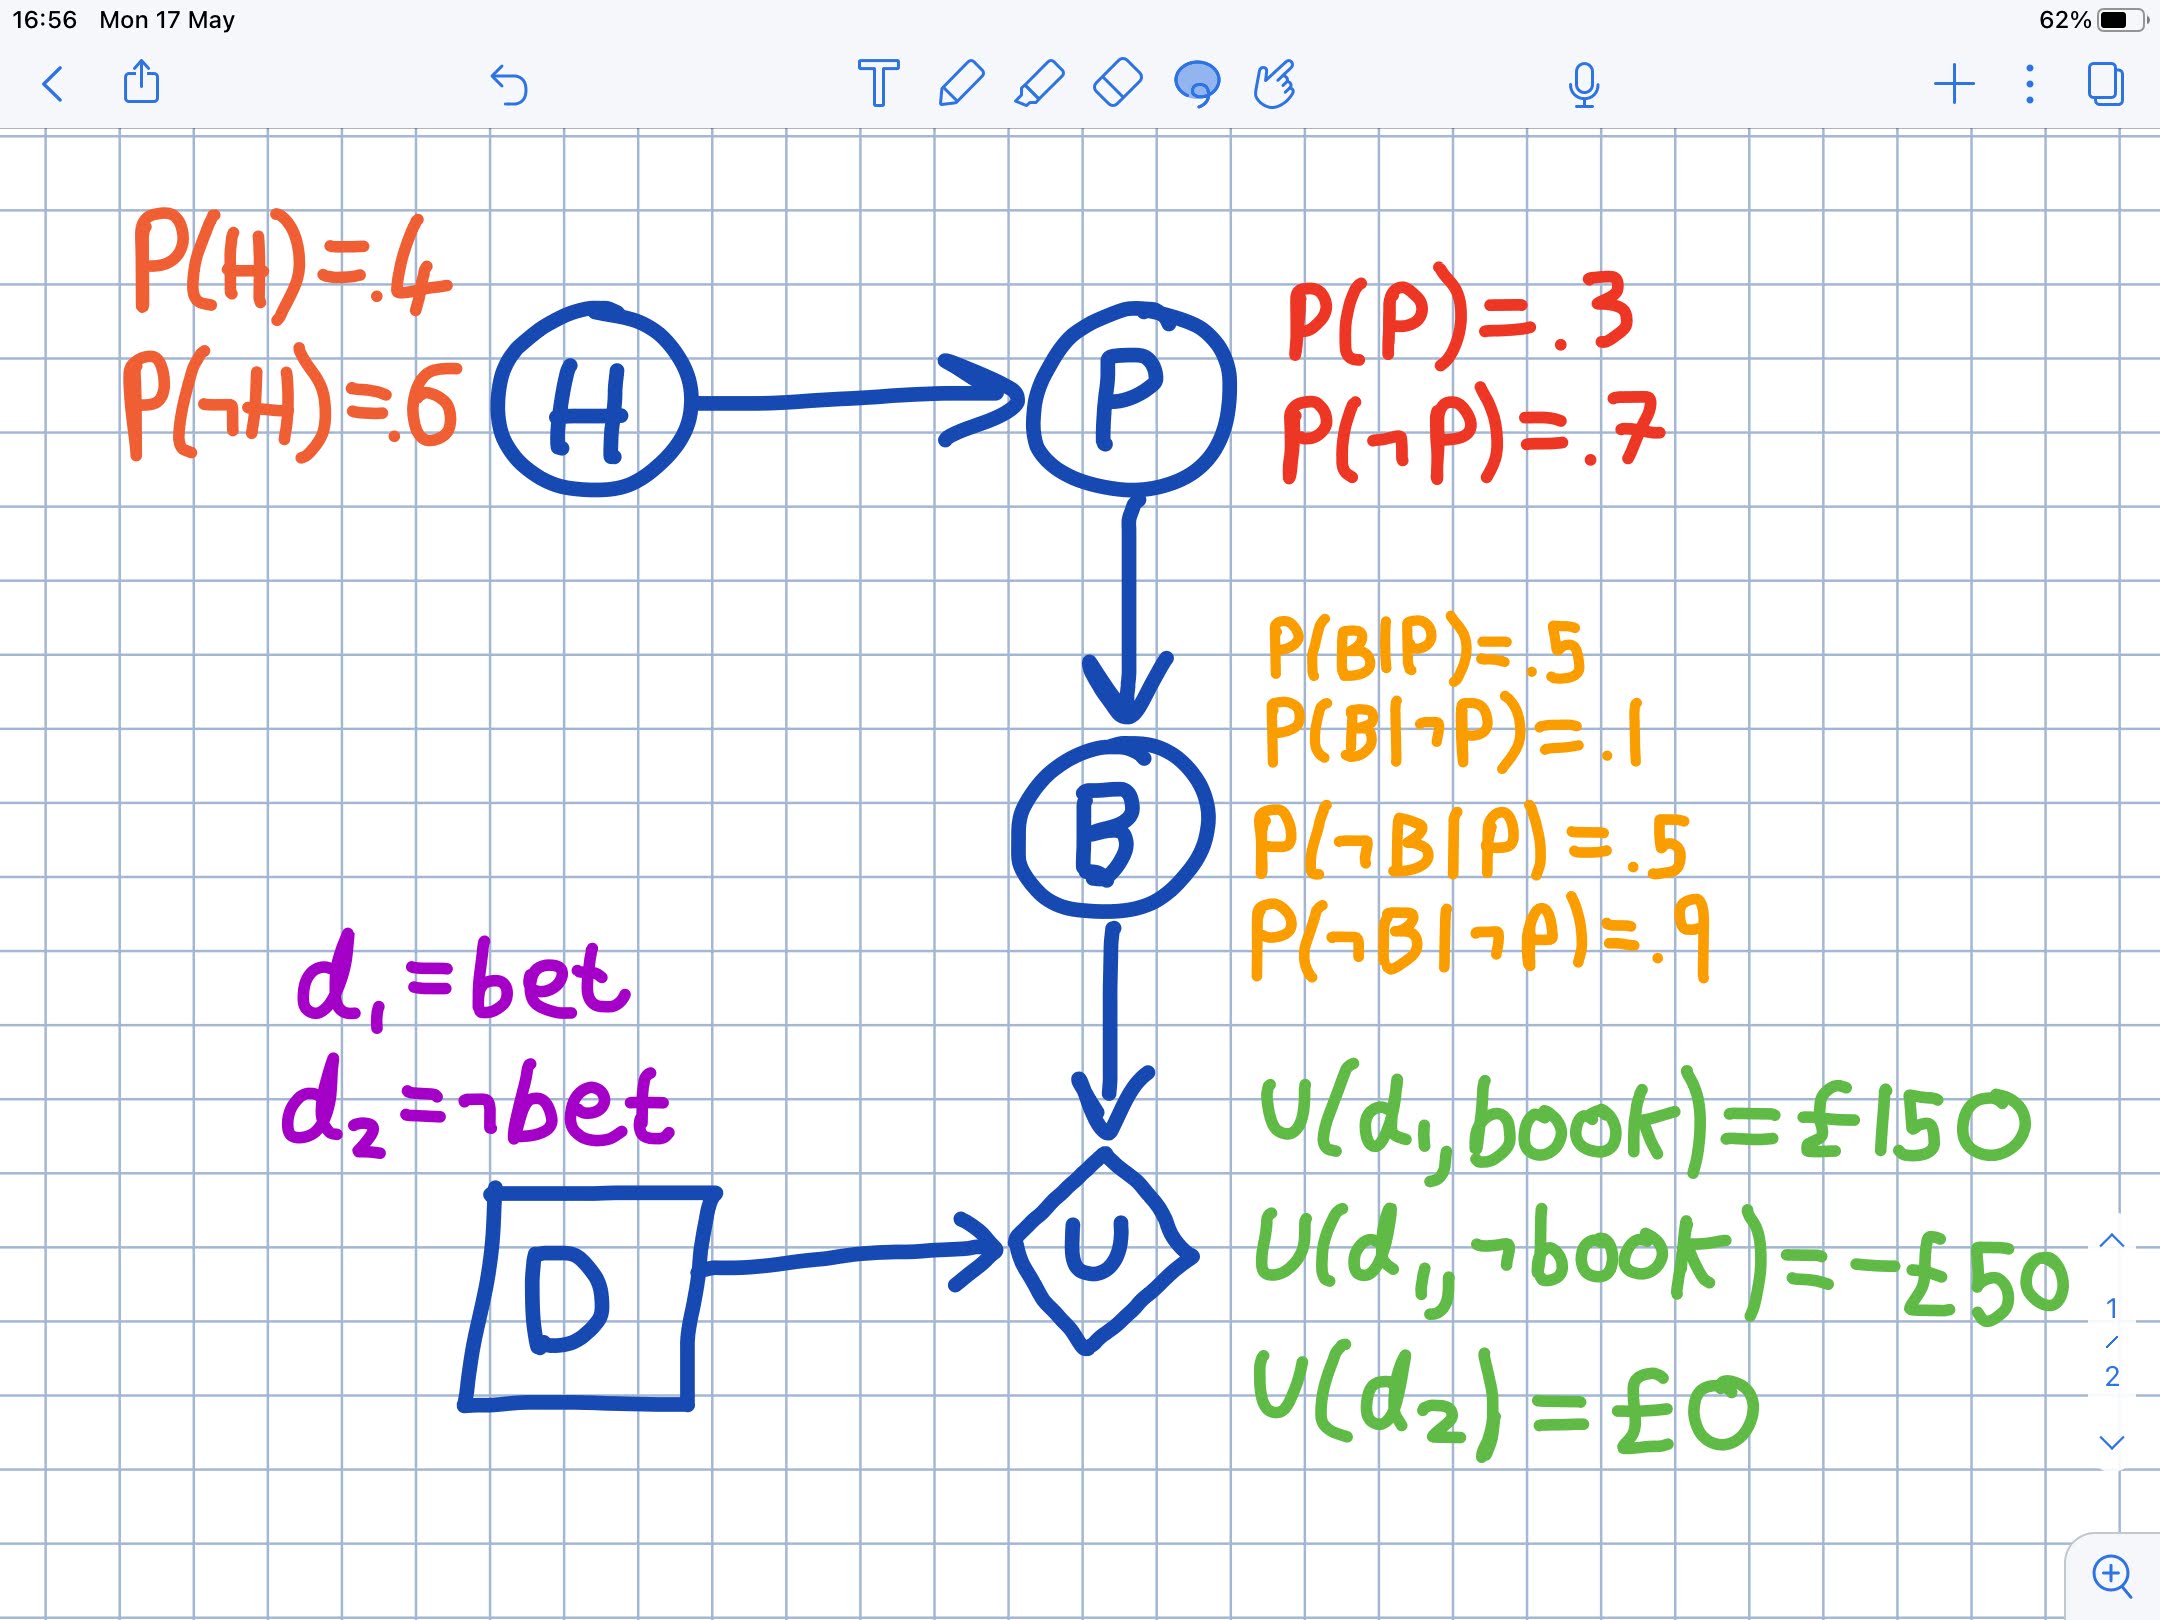 16:56 Mon 17 May 62%
P(H)=.4
P(¬H)=.6
H
P
P(P)=.3
P(¬P)=.7
P(B|P)=.5
P(B|¬P)=.1
P(¬B|P)=.5
P(¬B|¬P)=.9
B
d₁=bet
d₂=¬bet
D
U
U(d₁,book)=£150
U(d₁,¬book)=-£50
U(d₂)=£0
1
/
2